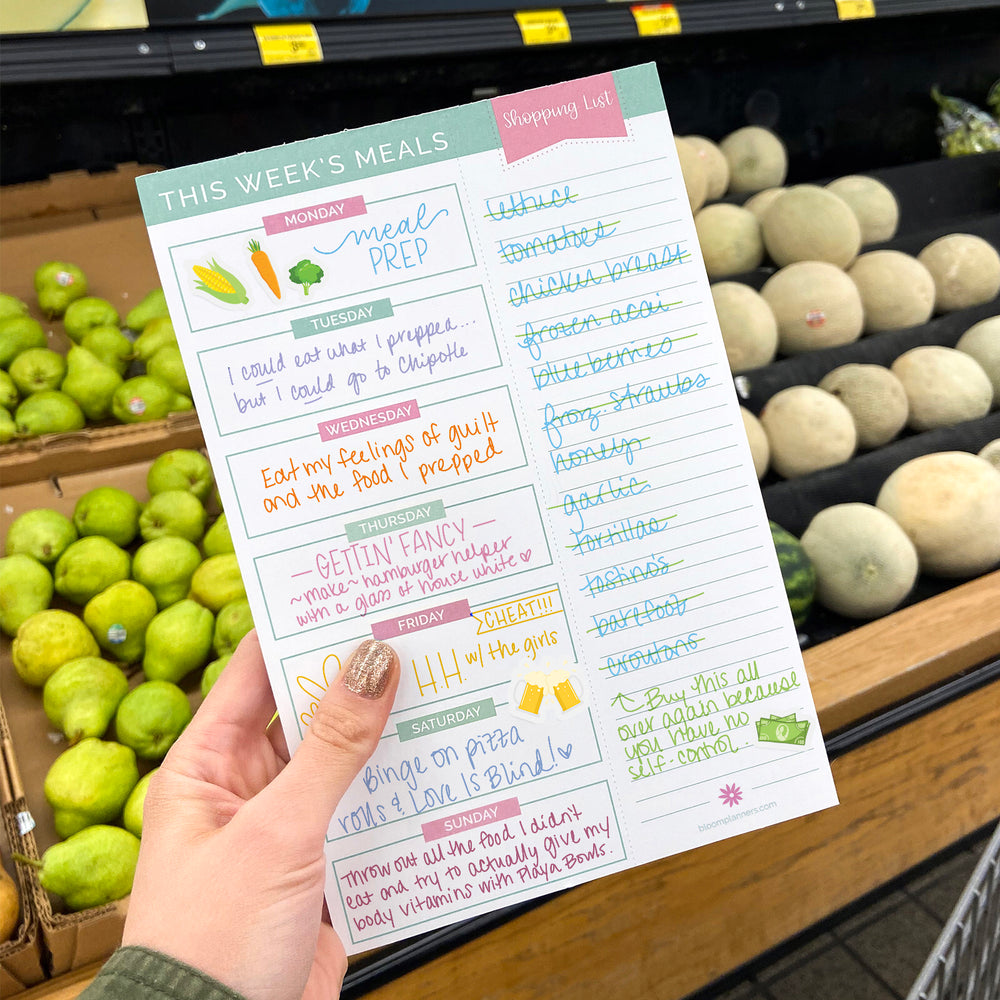 THIS WEEK'S MEALS
MONDAY
meal
PREP
TUESDAY
I could eat what I prepped...
but I could go to Chipotle
WEDNESDAY
Eat my feelings of guilt
and the food I prepped
THURSDAY
— GETTIN' FANCY —
~make~ hamburger helper
with a glass of house white ♡
FRIDAY
CHEAT!!!
H.H. w/ the girls
SATURDAY
Binge on pizza
rolls & Love Is Blind! ♡
SUNDAY
Throw out all the food I didn't
eat and try to actually give my
body vitamins with Playa Bowls.
Shopping List
lettuce
tomatoes
chicken breast
frozen acai
blueberries
froz. strawbs
honey
garlic
tortillas
tostino's
barefoot
croutons
Buy this all
over again because
you have no
self-control...
bloomplanners.com